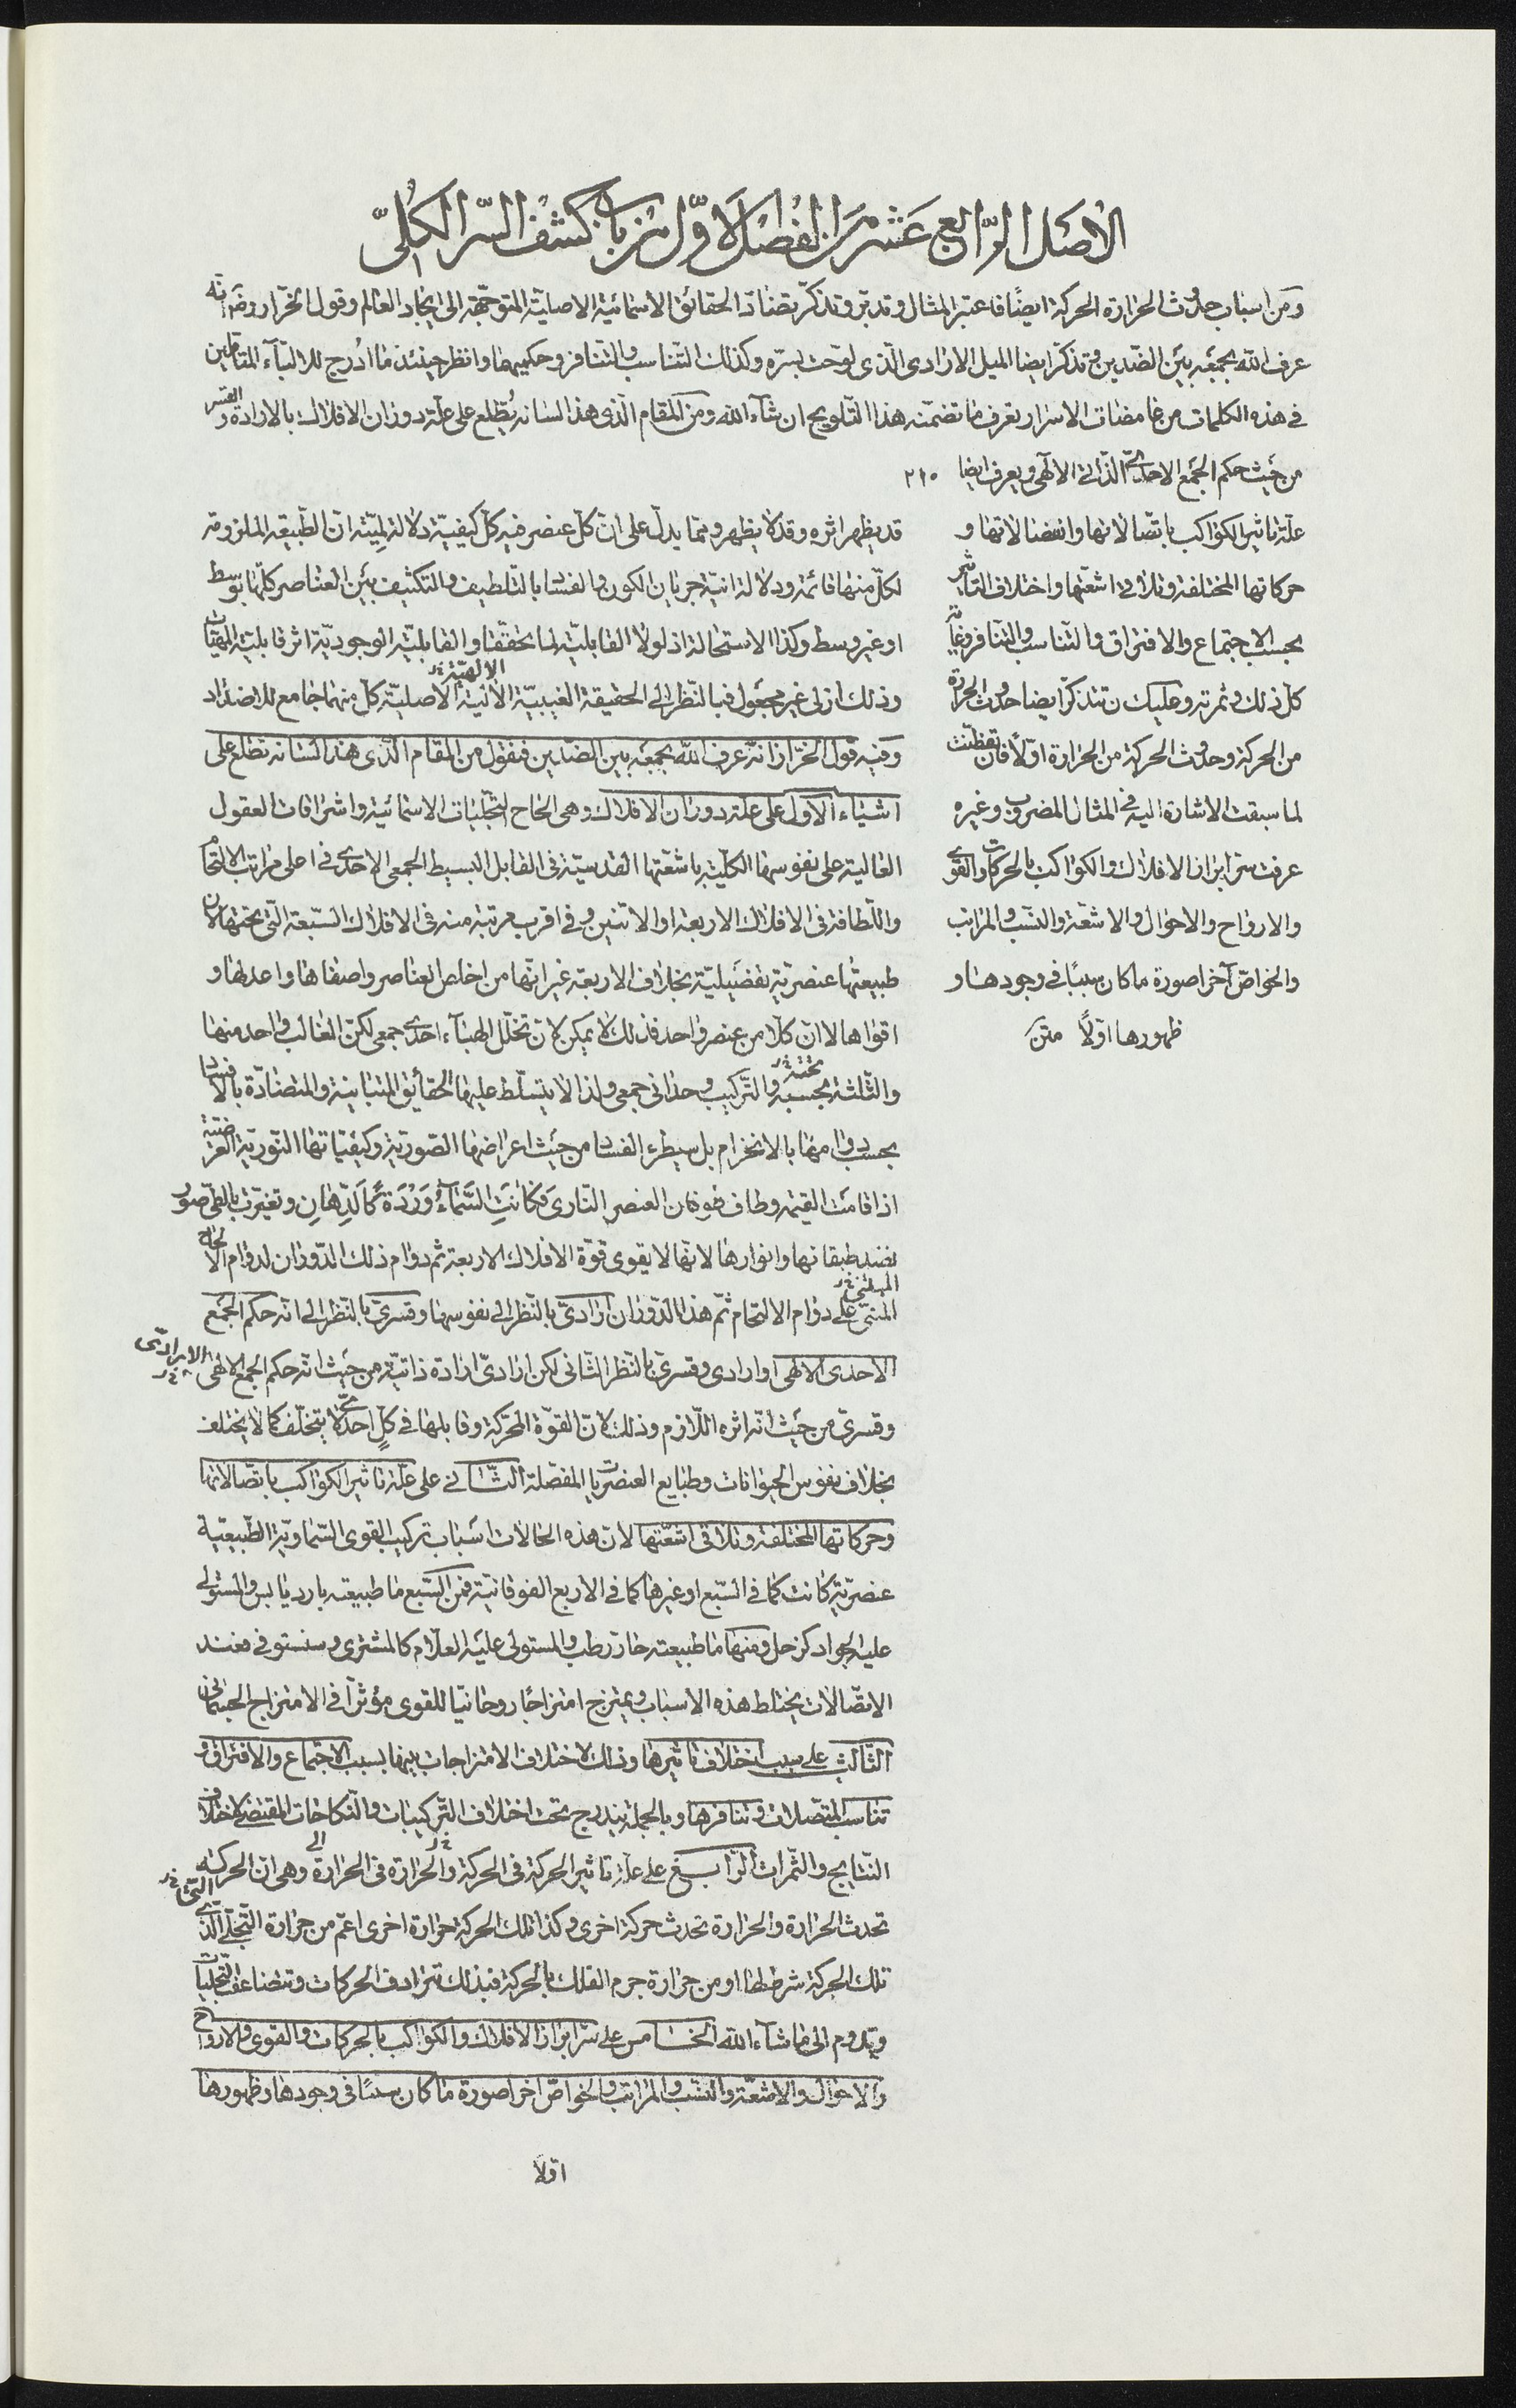 الاصل الرّابع عشر من الفصل الاوّل من باب كشف السّر الكلّى
ومن اسباب حدوث الحرارة الحركة ايضًا فاعتبر المثال وتدبّر وتذكّر تضادّ الحقائق الاسمائيّة الاصليّة المتوجّهة الى ايجاد العالم وقول الخرّاز رضه انه
عرف الله بجمعه بين الضّدين وتذكّر ايضا الميل الارادى الّذى لوّحت بسرّه وكذلك التّناسب والتّنافر وحكميهما وانظر حينئذ ما ادرج للالبّاء المتأمّلين
فى هذه الكلمات من غامضات الاسرار تعرف ما تضمّنه هذا التّلويح ان شآء الله ومن المقام الّذى هذا لسانه يُطّلع على علّة دوران الافلاك بالارادة والقسر
من حيث حكم الجمع الاحدىّ الذّاتى الالهى ويعرف ايضا ٢١٥
علّة تاثير الكواكب باتّصالاتها وانفصالاتها و
حركاتها المختلفة وتلاقى اشعّتها واختلاف التاثير
بحسب الاجتماع والافتراق والتّناسب والتّنافر وغاية
كلّ ذلك وثمرته وعليك ان تتذكّر ايضا حدوث الحرارة
من الحركة وحدوث الحركة من الحرارة اوّلًا فان تفطّنت
لما سبقت الاشارة اليه فى المثال المضروب وغيره
عرفت سرّ ابراز الافلاك والكواكب بالحركات والقوى
والارواح والاحوال والاشعّة والنّسب والمراتب
والخواصّ آخرا صورة ما كان سببًا فى وجودها و
ظهورها اوّلًا متن
قد يظهر اثره وقد لا يظهر وممّا يدلّ على انّ كلّ عنصر فيه كلّ كيفيّة دلالة لمّيّة انّ الطّبيعة الملزومة
لكلّ منها قائمة ودلالة انّيّة جريان الكون والفساد بالتّلطيف والتكثيف بين العناصر كلّها بوسط
او غير وسط وكذا الاستحالة اذ لولا القابليّة لما تحقّقا والقابليّة الوجوديّة اثر قابليّة المهيّات
وذلك ازلى غير مجعول فبالنّظر الى الحقيقة الغيبيّة الالهيّة الاصليّة كلّ منهما جامع للاضداد
وفيه قول الخرّاز انّه عرف الله بجمعه بين الضّدين فنقول من المقام الّذى هذا لسانه نطّلع على
اشياء الاوّل على علّة دوران الافلاك وهى الحاح التجلّيات الاسمائيّة واشراقات العقول
العالية على نفوسها الكلّيّة باشعّتها القدسيّة فى القابل البسيط الجمعى الاحدى فى اعلى مراتب الالتحام
واللّطافة فى الافلاك الاربعة او الاثنين وفى اقرب مرتبة منه فى الافلاك السّبعة الّتى تحتها لان
طبيعتها عنصريّة تفصيليّة بخلاف الاربعة غير انّها من اخلص العناصر واصفاها واعدلها و
اقواها لا انّ كلّا من عنصر واحد فذلك لا يمكن لانّ تخلّل الهبآء احدى جمعى لكنّ الغالب واحد منها
والثّلثة بحسبه والتّركيب وحدانى جمعى ولذا لا يتسلّط عليها الحقائق المتباينة والمتضادّة بالافساد
بحسب دوامها بالانخرام بل سيطرء الفساد من حيث اعراضها الصّوريّة وكيفيّاتها النّوريّة العرضيّة
اذا قامت القيمة وطاف طوفان العنصر النّارى فكانت السّمآء وَرْدَة كالدّهان وتغيّرت بالطّى صور
نضد طبقاتها وانوارها لانّها لا يقوى قوّة الافلاك الاربعة ثمّ دوام ذلك الدّوران لدوام الالحاح
المبتنى على دوام الالتحام ثمّ هذا الدّوران ارادىّ بالنّظر الى نفوسها وقسرىّ بالنّظر الى انّه حكم الجمع
الاحدى الالهى او ارادى وقسرىّ بالنّظر الثّانى لكن ارادىّ ارادة ذاتيّة من حيث انّه حكم الجمع الالهى
وقسرىّ من حيث انّه اثره اللّازم وذلك لانّ القوّة المحرّكة وقابلها فى كلٍّ احدىّ لا يتخلّف كما لا يختلف
بخلاف نفوس الحيوانات وطبايع العنصريات المفصّلة الثّانى على علّة تاثير الكواكب باتّصالاتها
وحركاتها المختلفة وتلاقى اشعّتها لانّ هذه الحالات اسباب تركيب القوى السّماويّة الطّبيعيّة
عنصريّة كانت كما فى السّبع او غيرها كما فى الاربع الفوقانيّة فمن السّبع ما طبيعته بارد يابس والمستولى
عليه الجواد كزحل ومنها ما طبيعته حارّ رطب والمستولى عليه العلّام كالمشترى وسنستوفى فعند
الاتّصالات يختلط هذه الاسباب ويمتزج امتزاجًا روحانيًّا للقوى مؤثّرًا فى الامتزاج الجسمانى
الثّالث على سبب اختلاف تاثيرها وذلك لاختلاف الامتزاجات بينها بسبب الاجتماع والافتراق و
تناسب المتّصلات وتنافرها وبالجملة يندرج تحت اختلاف التّركيبات والنّكاحات المقتضى لاختلاف
النّتايج والثّمرات الرّابع على علّة تاثير الحركة فى الحركة والحرارة فى الحرارة وهى انّ الحركة
تحدث الحرارة والحرارة تحدث حركة اخرى وكذا تلك الحركة حرارة اخرى اعمّ من حرارة التّجلّى الّذى
تلك الحركة شرطها او من حرارة جرم الفلك بالحركة فبذلك تترادف الحركات وتتضاعف التجلّيات
ويدوم الى ما شآء الله الخامس على سرّ ابراز الافلاك والكواكب بالحركات والقوى والارواح
والاحوال والاشعّة والنّسب والمراتب والخواصّ اخرا صورة ما كان سببًا فى وجودها وظهورها
اوّلًا